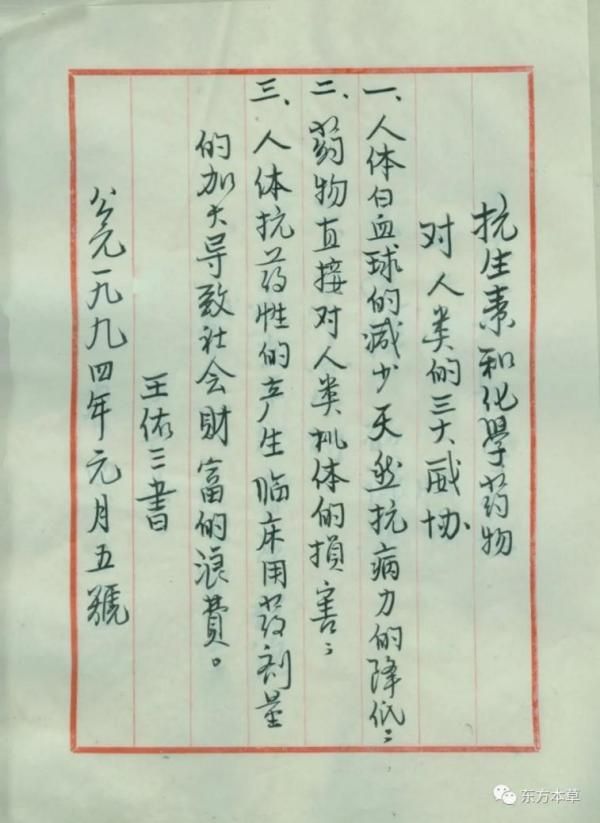 抗生素和化學药物
对人类的三大威协
一、人体白血球的减少天然抗病力的降低；
二、药物直接对人类机体的損害；
三、人体抗药性的产生临床用药剂量
的加大导致社会財富的浪費。
王佑三書
公元一九九四年元月五號
东方本草